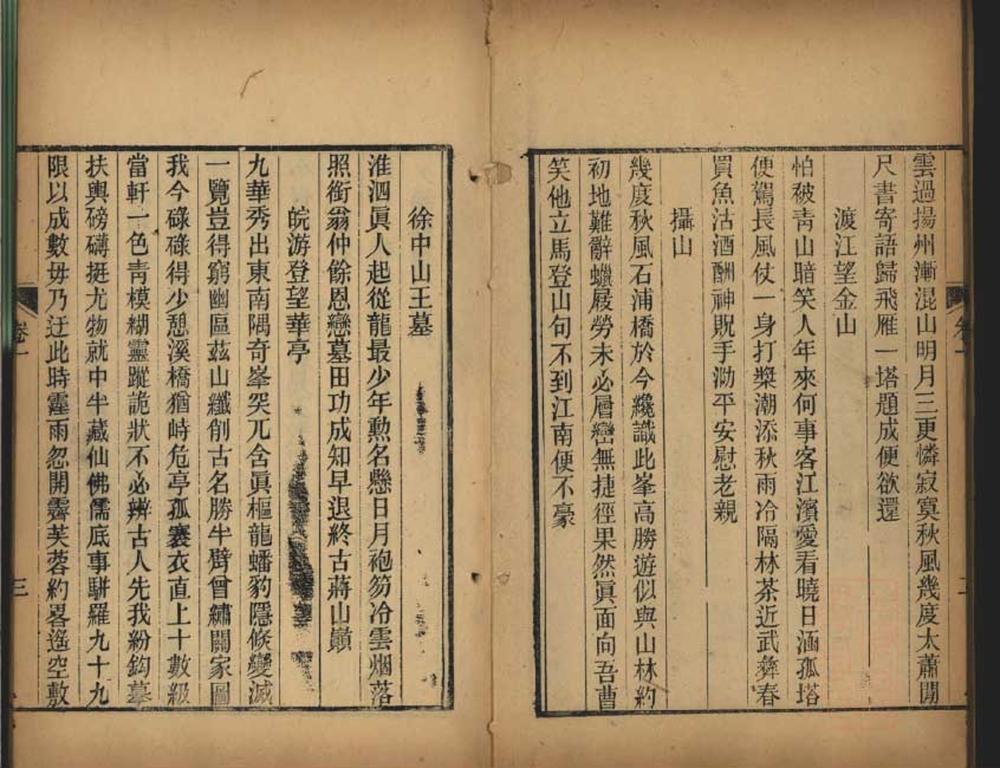 雲過揚州漸混山明月三更憐寂寞秋風幾度太蕭閒
尺書寄語歸飛雁一塔題成便欲還
渡江望金山
怕被青山暗笑人年來何事客江濱愛看曉日涵孤塔
便駕長風仗一身打槳潮添秋雨冷隔林茶近武彝春
買魚沽酒酬神貺手泐平安慰老親
攝山
幾度秋風石浦橋於今纔識此峯高勝遊似與山林約
初地難辭蠟屐勞未必層巒無捷徑果然眞面向吾曹
笑他立馬登山句不到江南便不豪
卷一
二
徐中山王墓
淮泗眞人起從龍最少年勲名懸日月袍笏冷雲烟落
照銜翁仲餘恩戀墓田功成知早退終古蔣山巔
皖游登望華亭
九華秀出東南隅奇峯突兀含眞樞龍蟠豹隱倐變滅
一覽豈得窮幽區茲山纖削古名勝半臂曾繡闢家圖
我今碌碌得少憩溪橋猶峙危亭孤褰衣直上十數級
當軒一色青模糊靈蹤詭狀不必辨古人先我紛鈎摹
扶輿磅礴挺尤物就中半藏仙佛儒底事駢羅九十九
限以成數毋乃迂此時霾雨忽開霽芙蓉約畧遙空敷
卷一
三